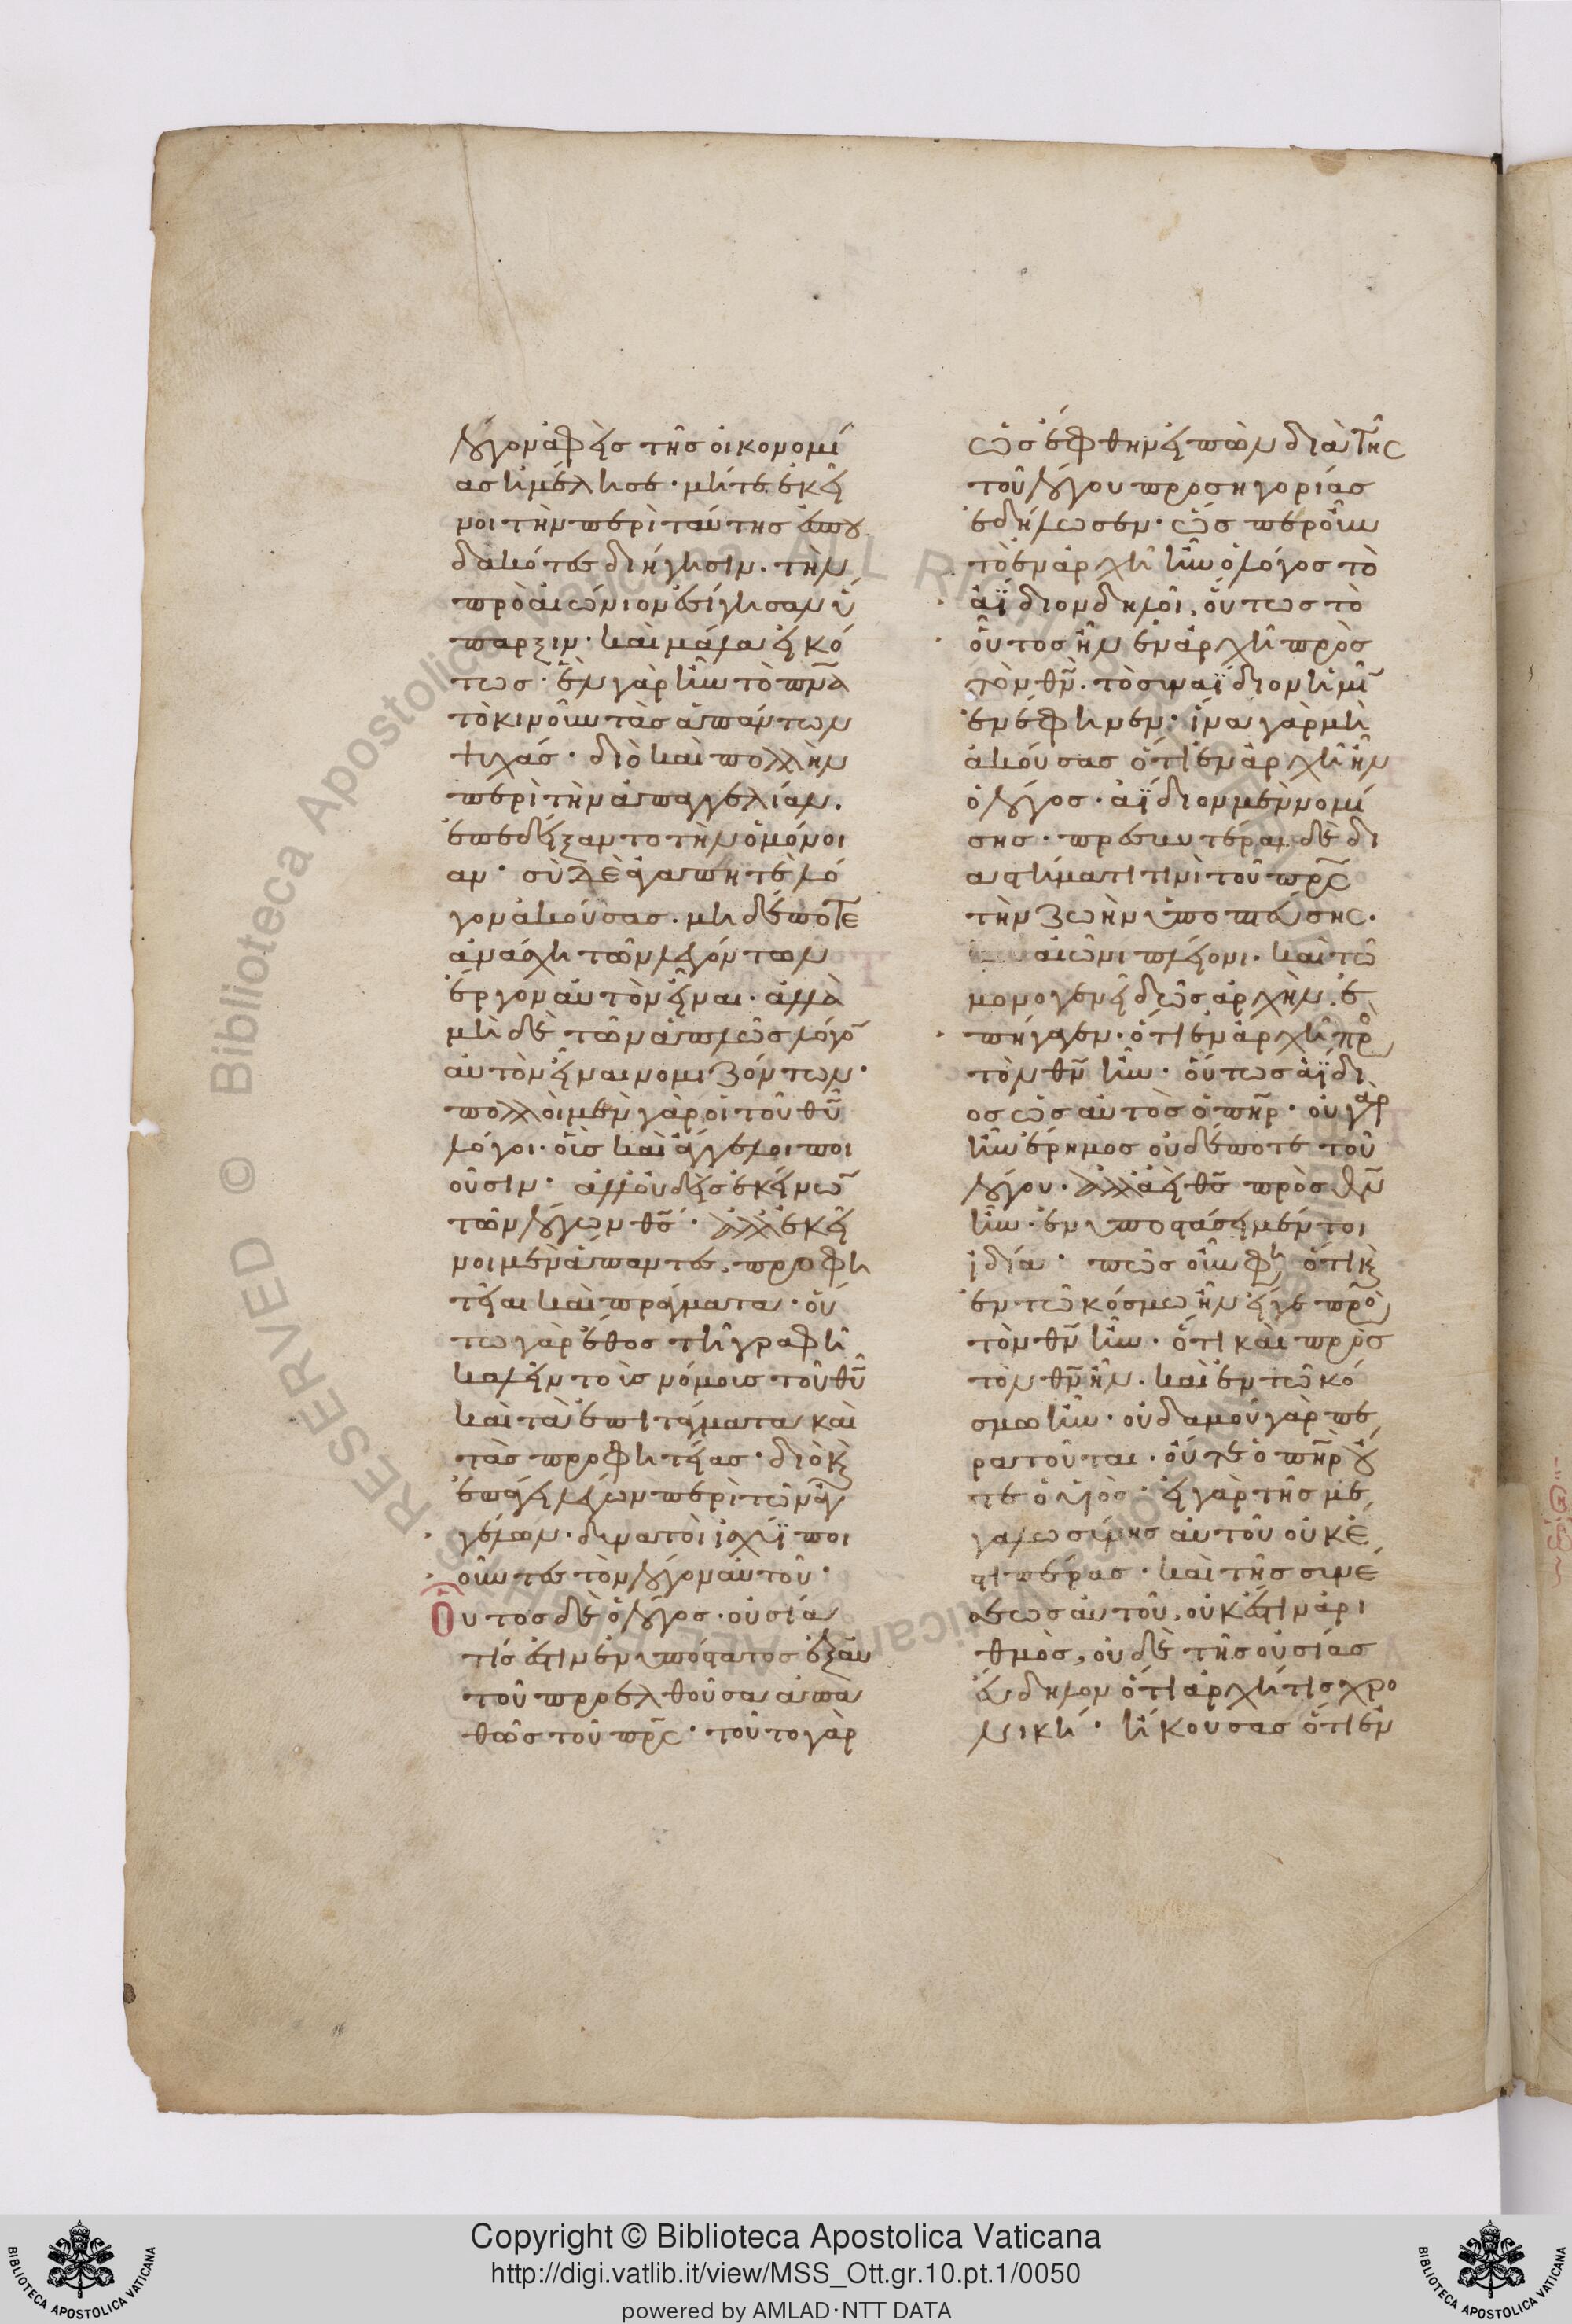 λόγον ἀφεὶς τῆς οἰκονομί
ας ἠμέλησε· μήτε ἐκεῖ
νοι τὴν περὶ ταύτης ἐσπου
δακότες διήγησιν. τὴν
προαιώνιον ἐσίγησαν ὕ
παρξιν· καὶ μάλα εἰκό
τως· ἓν γὰρ ἦν τὸ πν̅α
τὸ κινοῦν τὰς ἁπάντων
ψυχάς· διὸ καὶ πολλὴν
περὶ τὴν ἀπαγγελίαν.
ἐπεδείξαντο τὴν ὁμόνοι
αν· σὺ δὲ ἀγαπητὲ λό
γον ἀκούσας. μηδέποτε
ἀνάσχῃ τῶν λεγόντων
ἔργον αὐτὸν εἶναι. ἀλλὰ
μηδὲ τῶν ἁπλῶς λόγον
αὐτὸν εἶναι νομιζόντων·
πολλοὶ μὲν γὰρ οἱ τοῦ θ̅υ
λόγοι· οἷς καὶ ἄγγελοι ποι
οῦσιν· ἀλλ' οὐδεὶς ἐκείνων
τῶν λόγων θ̅ς· ἀλλ' ἐκεῖ
νοι μὲν ἅπαντες, προφη
τεῖαι καὶ προστάγματα· οὕ
τω γὰρ ἔθος τῇ γραφῇ
καλεῖν τοὺς νόμους τοῦ θ̅υ
καὶ τὰ ἐπιτάγματα καὶ
τὰς προφητείας· διὸ κ(αὶ)
ἐπάγει λέγων περὶ τῶν ἀγ
γέλων· δυνατοὶ ἰσχύϊ ποι
οῦντες τὸν λόγον αὐτοῦ·
Οὗτος δὲ ὁ λόγος· οὐσία
τίς ἐστιν ἐνυπόστατος ἐξ αὐ
τοῦ προελθοῦσα ἀπα
θῶς τοῦ πρ̅ς· τοῦτο γὰρ
ὡς ἔφθην εἰπὼν διὰ τῆς
τοῦ λόγου προσηγορίας
ἐδήλωσεν· ὥσπερ οὖν
τὸ ἐν ἀρχῇ ἦν ὁ λόγος τὸ
ἀΐδιον δηλοῖ, οὕτως τὸ
οὗτος ἦν ἐν ἀρχῇ πρὸς
τὸν θ̅ν. τὸ συναΐδιον ἡμῖν
ἐνέφηνεν· ἵνα γὰρ μὴ
ἀκούσας ὅτι ἐν ἀρχῇ ἦν
ὁ λόγος· ἀΐδιον μὲν νομί
σῃς· πρεσβυτέραν δὲ δι
αστήματι τινὶ τοῦ πρ̅ς
τὴν ζωὴν ὑποπτεύσῃς.
αἰῶνι πλείονι. καὶ τῷ
μονογενεῖ δῷς ἀρχήν. ἐ
πήγαγεν· ὅτι ἐν ἀρχῇ πρὸς
τὸν θ̅ν ἦν· οὕτως ἀΐδι
ος ὡς αὐτὸς ὁ π̅ηρ· οὐ γὰρ
ἦν ἔρημος οὐδέποτε τοῦ
λόγου· ἀλλ' ἀεὶ θ̅ς πρὸς θ̅ν
ἦν· ἐν ὑποστάσει μέντοι
ἰδίᾳ· πῶς οὖν φη(σὶν) ὅτι κ(αὶ)
ἐν τῷ κόσμῳ ἦν εἴγε πρὸς
τὸν θ̅ν ἦν· ὅτι καὶ πρὸς
τὸν θ̅ν ἦν. καὶ ἐν τῷ κό
σμῳ ἦν· οὐδαμοῦ γὰρ πε
ρατοῦται· οὔτε ὁ π̅ηρ οὔ
τε ὁ υἱός· εἰ γὰρ τῆς με
γαλωσύνης αὐτοῦ οὐκ ἔ
στι πέρας· καὶ τῆς συνέ
σεως αὐτοῦ, οὐκ ἔστιν ἀρι
θμὸς, οὐδὲ τῆς οὐσίας
εὔδηλον ὅτι ἀρχή τις χρο
νική· ἤκουσας ὅτι ἐν
Copyright © Biblioteca Apostolica Vaticana
http://digi.vatlib.it/view/MSS_Ott.gr.10.pt.1/0050
powered by AMLAD·NTT DATA
BIBLIOTECA APOSTOLICA VATICANA
BIBLIOTECA APOSTOLICA VATICANA